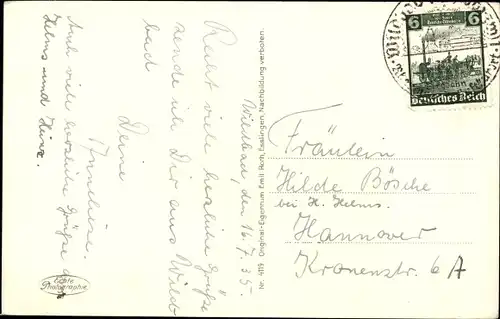 Wildbad, den 16.7.35
Recht viele herzliche Grüße
sende ich Dir aus Wild
bad
Deine
Anneliese.
Auch viele herzliche Grüße
Helms und Heinz.
Echte
Photographie
Nr. 4115 Original-Eigentum Emil Roth, Esslingen. Nachbildung verboten.
6 6
Deutsches Reich
Fräulein
Hilde Bösche
bei H. Helms.
Hannover
Kronenstr. 6A